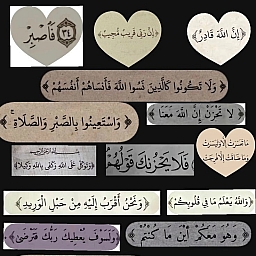 فَٱصْبِرْ ٣٤
إِنَّ رَبِّي قَرِيبٌ مُّجِيبٌ
إِنَّ اللَّهَ قَادِرٌ
وَلَا تَكُونُوا كَالَّذِينَ نَسُوا اللَّهَ فَأَنسَاهُمْ أَنفُسَهُمْ
لَا تَحْزَنْ إِنَّ اللَّهَ مَعَنَا
وَاسْتَعِينُوا بِالصَّبْرِ وَالصَّلَاةِ
وَتَوَكَّلْ عَلَى اللَّهِ وَكَفَى بِاللَّهِ وَكِيلًا
فَلَا يَحْزُنكَ قَوْلُهُمْ
وَنَحْنُ أَقْرَبُ إِلَيْهِ مِنْ حَبْلِ الْوَرِيدِ
وَاللَّهُ يَعْلَمُ مَا فِي قُلُوبِكُمْ
وَلَسَوْفَ يُعْطِيكَ رَبُّكَ فَتَرْضَىٰ
وَهُوَ مَعَكُمْ أَيْنَ مَا كُنتُمْ